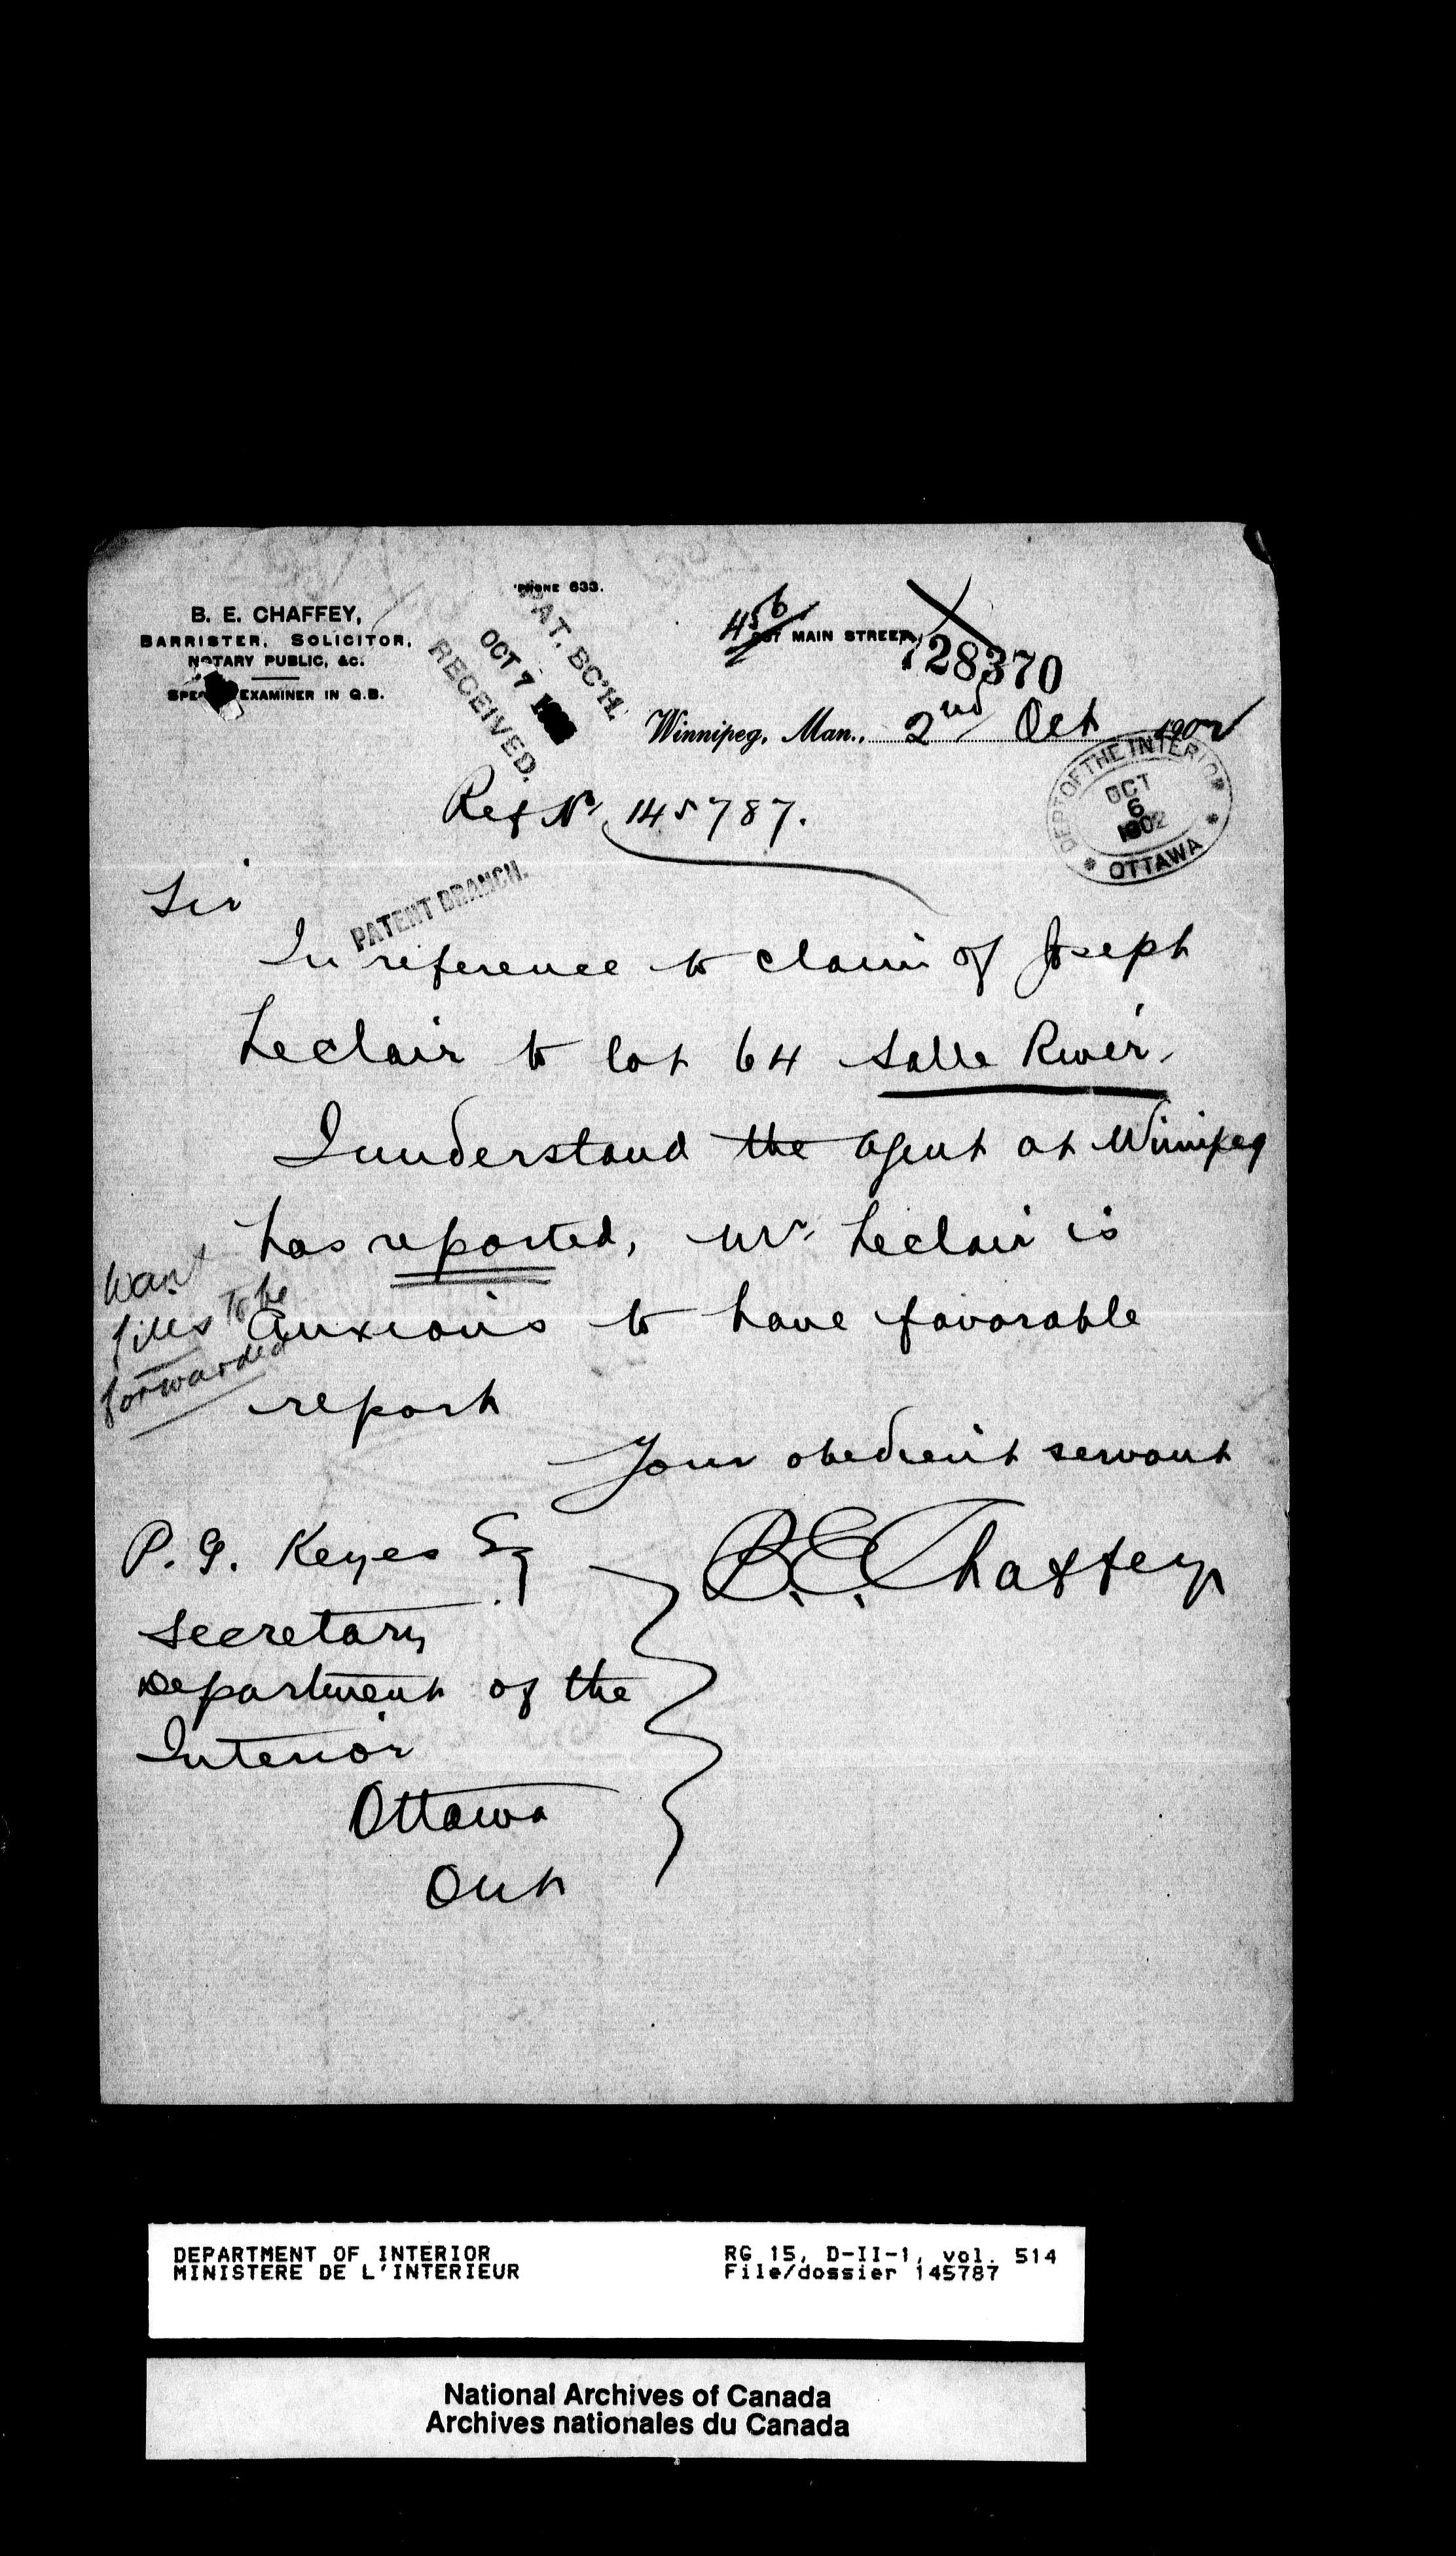 'PHONE 633.
B. E. CHAFFEY,
BARRISTER, SOLICITOR,
NOTARY PUBLIC, &C.
EXAMINER IN Q.B.
PAT. BCH.
OCT 7
RECEIVED.
456 MAIN STREET,
728370
Winnipeg, Man., 2nd Oct 1902
DEPT OF THE INTERIOR
OCT
6
1902
OTTAWA
Ref No 145787.
PATENT BRANCH.
Sir
In reference to claim of Joseph
Leclair to lot 64 Salle River.
I understand the agent at Winnipeg
has reported, Mr. Leclair is
anxious to have favorable
report
Want
files to be
forwarded
Your obedient servant
B.E. Chaffey
P. G. Keyes Esq
Secretary
Department of the
Interior
Ottawa
Ont
DEPARTMENT OF INTERIOR
MINISTERE DE L'INTERIEUR
RG 15, D-II-1, vol. 514
File/dossier 145787
National Archives of Canada
Archives nationales du Canada